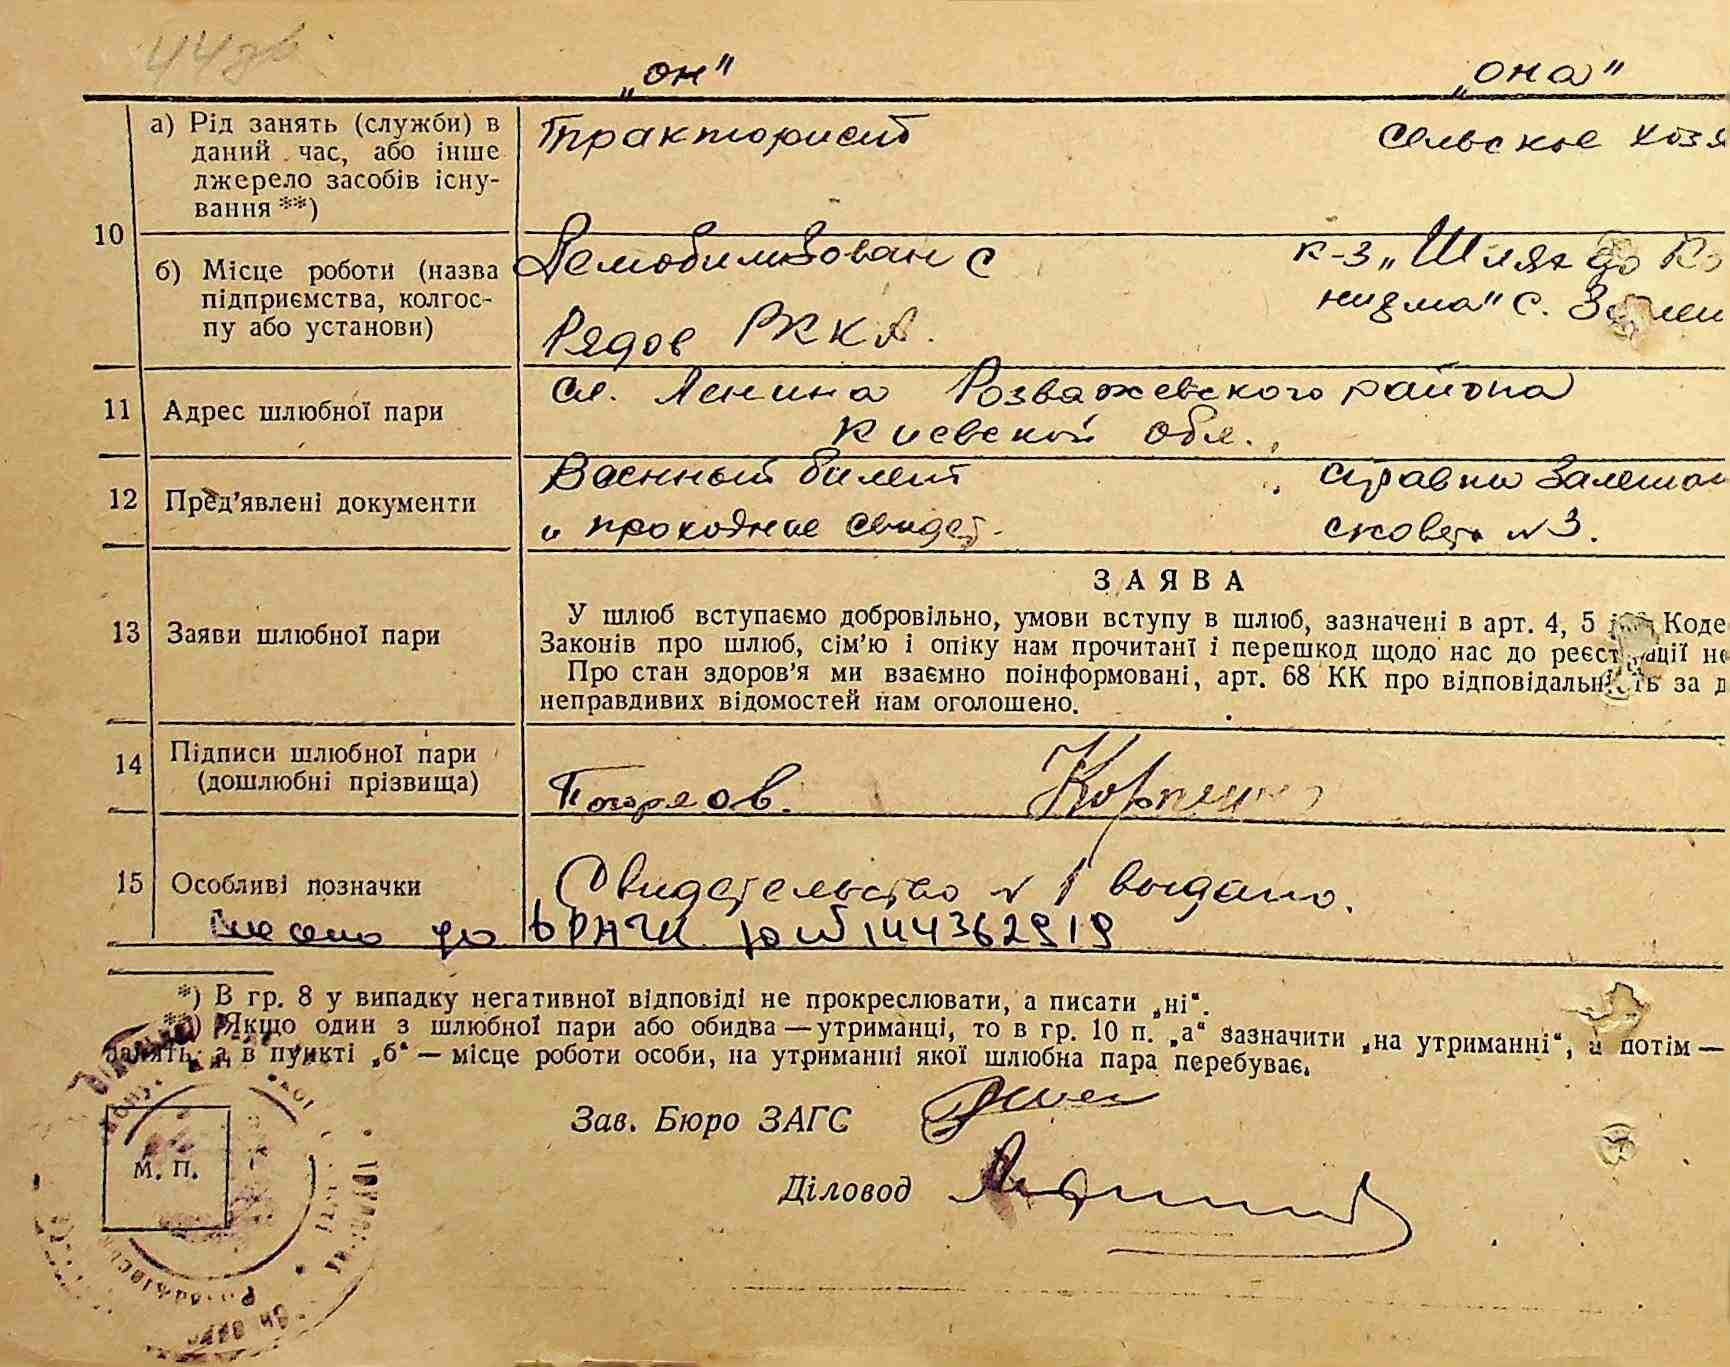 „он" „она"
10
а) Рід занять (служби) в
даний час, або інше
джерело засобів існу-
вання **)
Тракторист
сельское хозя
б) Місце роботи (назва
підприємства, колгос-
пу або установи)
Демобилизован с
Рядов РККА.
к-з „Шлях до Ко
низма" с.
11 Адрес шлюбної пари
сл. Ленина Розважевского района
Киевской обл.
12 Пред'явлені документи
Военный билет
и проходное свидет.
справка
№3.
13 Заяви шлюбної пари
ЗАЯВА
У шлюб вступаємо добровільно, умови вступу в шлюб, зазначені в арт. 4, 5 Коде
Законів про шлюб, сім'ю і опіку нам прочитані і перешкод щодо нас до реєстрації не
Про стан здоров'я ми взаємно поінформовані, арт. 68 КК про відповідальність за д
неправдивих відомостей нам оголошено.
14 Підписи шлюбної пари
(дошлюбні прізвища)
15 Особливі позначки
Свидетельство №1 выдано.
внесено до ДРАЦС 144362919
*) В гр. 8 у випадку негативної відповіді не прокреслювати, а писати „ні“.
**) Якщо один з шлюбної пари або обидва — утриманці, то в гр. 10 п. „а“ зазначити „на утриманні“, а потім —
занять, а в пункті „б“ — місце роботи особи, на утриманні якої шлюбна пара перебуває.
Зав. Бюро ЗАГС
Діловод
М. П.